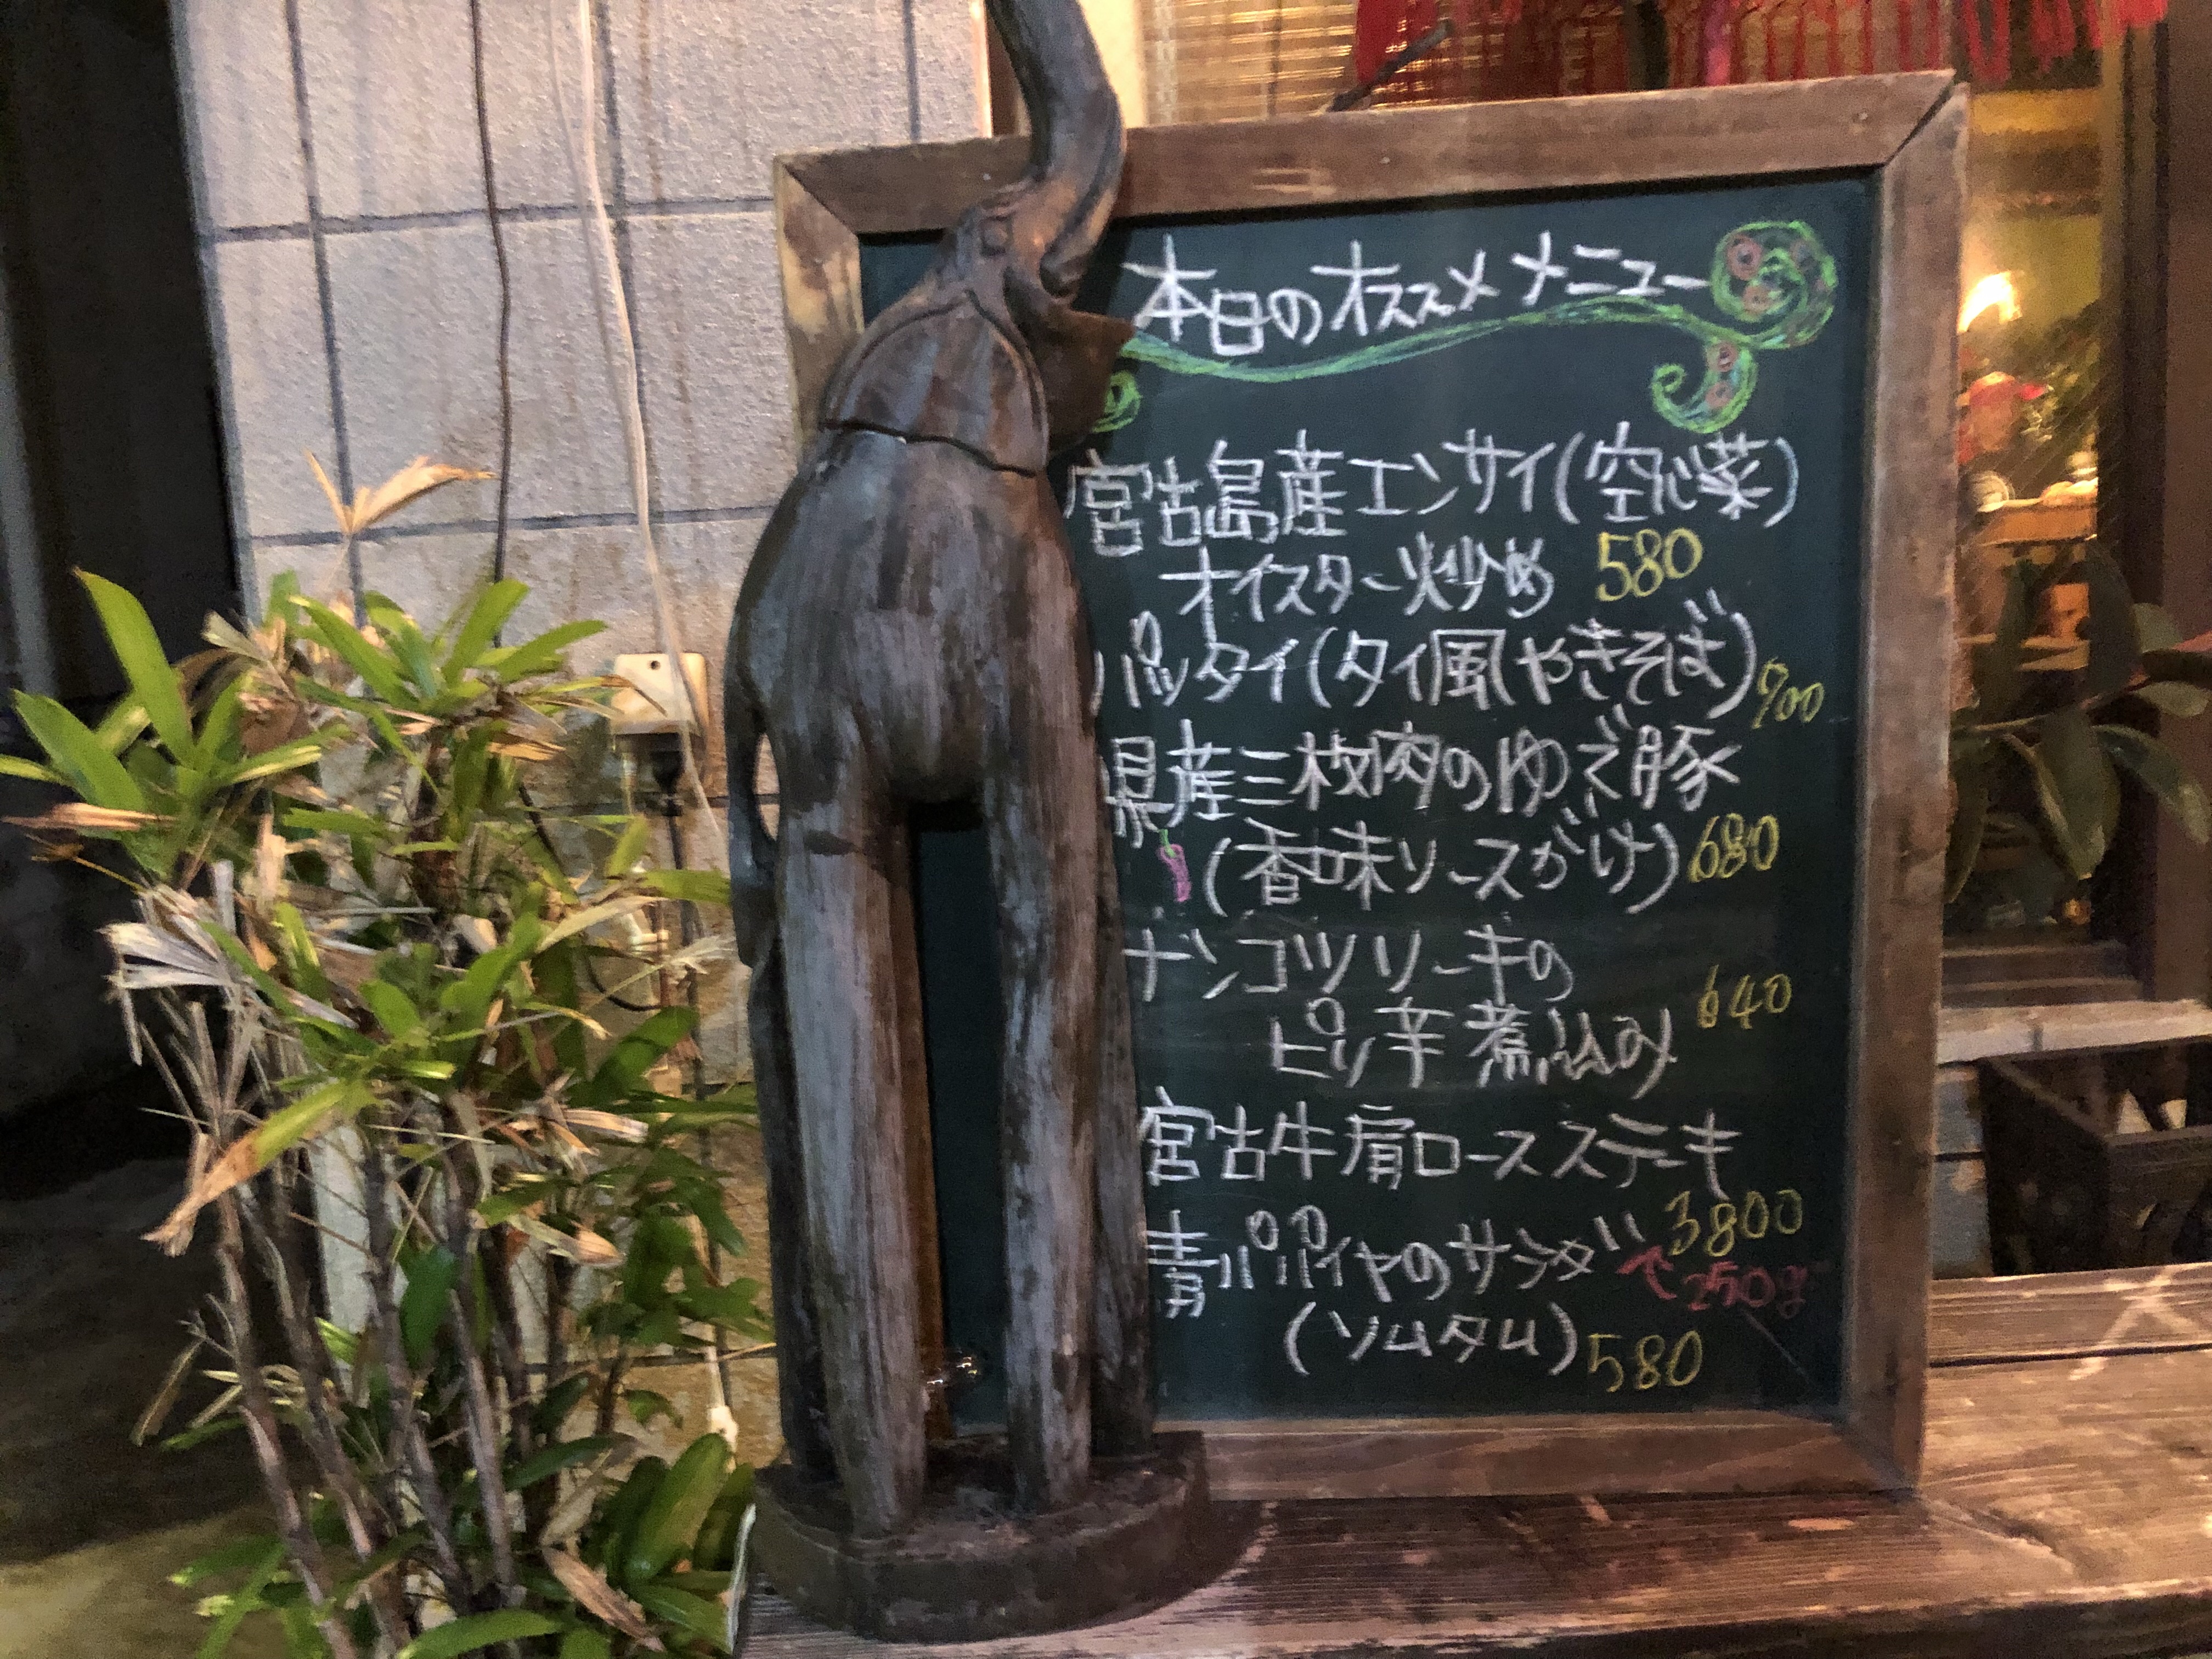 本日のオススメメニュー
宮古島産エンサイ(空心菜)
オイスター炒め 580
パッタイ(タイ風やきそば) 700
県産三枚肉のゆで豚
(香味ソースがけ) 680
ナンコツソーキの
ピリ辛煮込み 640
宮古牛肩ロースステーキ
3800
青パパイヤのサラダ
250g
(ソムタム) 580